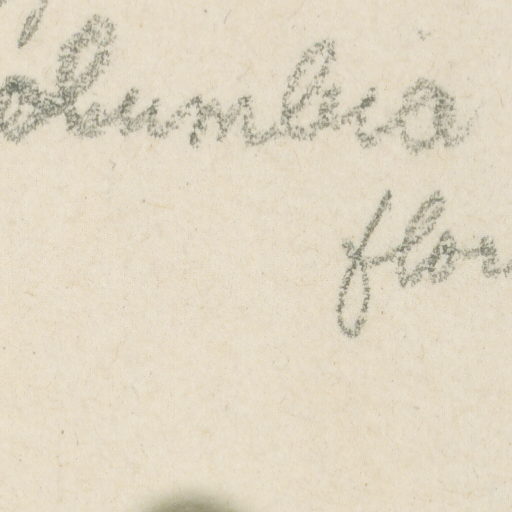 olumbia
flor